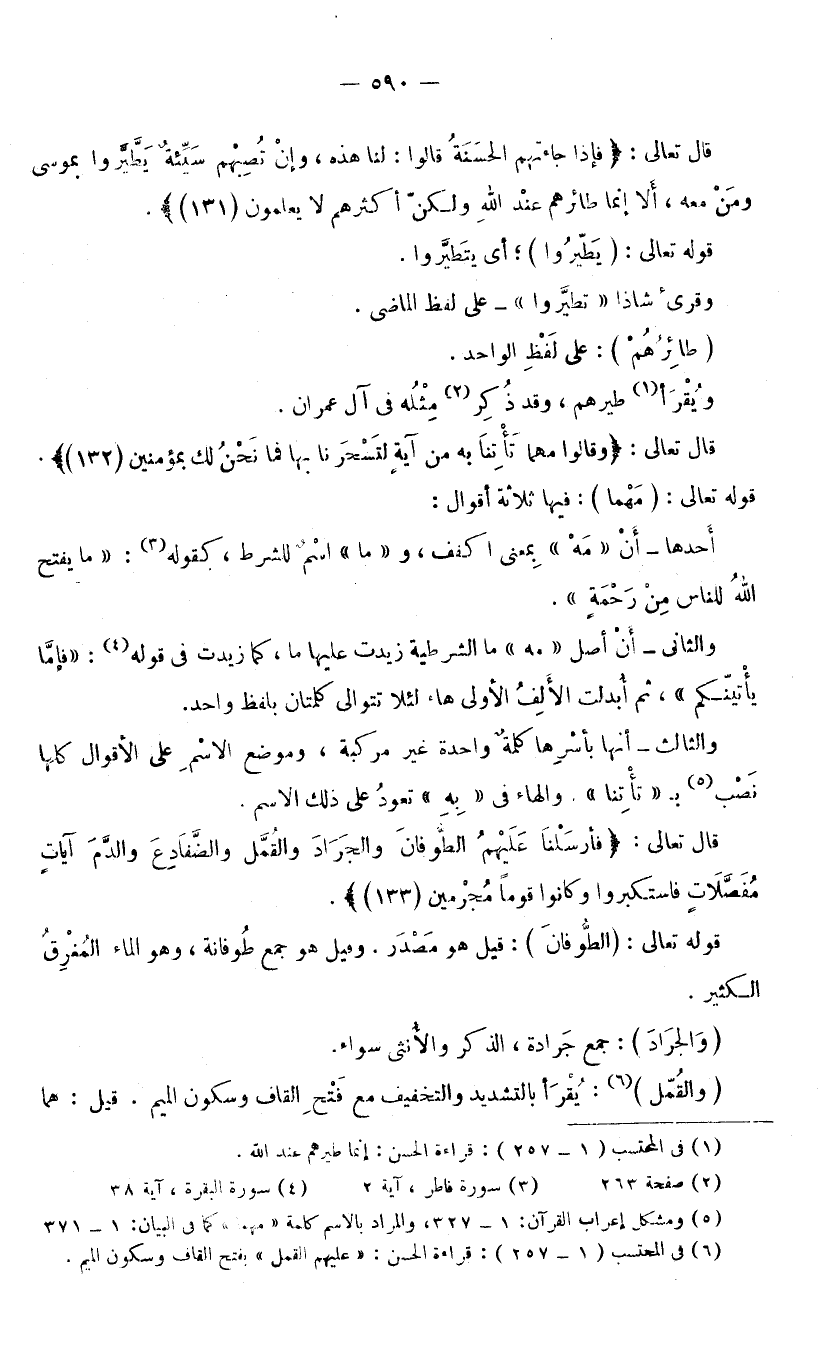 — ٥٩٠ —
قال تعالى : ﴿ فإذا جاءتهم الحسَنَةُ قالوا : لنا هذه ، وإنْ تُصِبْهم سَيِّئةٌ يَطَّيَّروا بموسى
ومَنْ معه ، أَلا إنما طائرهم عنْد اللهِ ولكنّ أكثرهم لا يعلمون (١٣١) ﴾ .
قوله تعالى : ( يَطَّيرُوا ) ؛ أى يتطيَّروا .
وقرىء شاذا « تطيَّروا » ـ على لفظ الماضى .
( طائِرُهُمْ ) : على لَفْظِ الواحد .
ويُقْرَأ(١) طيرهم ، وقد ذُكِر(٢) مِثْلُه فى آل عمران .
قال تعالى : ﴿وقالوا مهما تَأْتِنَا به من آيةٍ لتَسْحَرَنا بها فما نَحْنُ لك بمؤمنين (١٣٢)﴾ .
قوله تعالى : ( مَهْما ) : فيها ثلاثة أقوال :
أَحدها ـ أَنْ « مَهْ » بِمعنى اكفف ، و « ما » اسْمٌ للشرط ، كقوله(٣) : « ما يفتح
اللهُ للناس مِنْ رَحْمَةٍ » .
والثانى ـ أَنْ أصل « مه » ما الشرطية زيدت عليها ما ، كما زيدت فى قوله(٤) : «فإمَّا
يأْتينّكم » ، ثم أُبدلت الأَلِفُ الأولى هاء لئلا تتوالى كلمتان بلفظ واحد.
والثالث ـ أنها بأسْرِها كلمةٌ واحدة غير مركبة ، وموضع الاسْمِ على الأقوال كلها
نَصْب(٥) بـ « تأْتنا » . والهاء فى « بِهِ » تعودُ على ذلك الاسم .
قال تعالى : ﴿ فأرسَلْنَا عَلَيْهمُ الطُّوفانَ والجَرَادَ والقُمَّل والضَّفادِعَ والدَّمَ آيَاتٍ
مُفَصَّلَاتٍ فاستكبروا وكانوا قوماً مُجْرمين (١٣٣) ﴾ .
قوله تعالى : (الطُّوفانَ ) : قيل هو مَصْدَر . وقيل هو جمع طُوفانة ، وهو الماء المُغْرِقُ
الكثير .
( وَالجَرَادَ ) : جمع جَرادة ، الذكر والأُنثى سواء.
( والقُمّل )(٦) : يُقْرَأ بالتشديد والتخفيف مع فَتْحِ القاف وسكون الميم . قيل : هما
(١) فى المحتسب ( ١ ـ ٢٥٧ ) : قراءة الحسن : إنما طيرهم عند الله .
(٢) صفحة ٢٦٣ (٣) سورة فاطر ، آية ٢ (٤) سورة البقرة ، آية ٣٨
(٥) ومشكل إعراب القرآن: ١ ـ ٣٢٧، والمراد بالاسم كلمة « مهما » كما فى البيان: ١ ـ ٣٧١
(٦) فى المحتسب ( ١ ـ ٢٥٧ ) : قراءة الحسن : « عليهم القمل » بفتح القاف وسكون الميم .